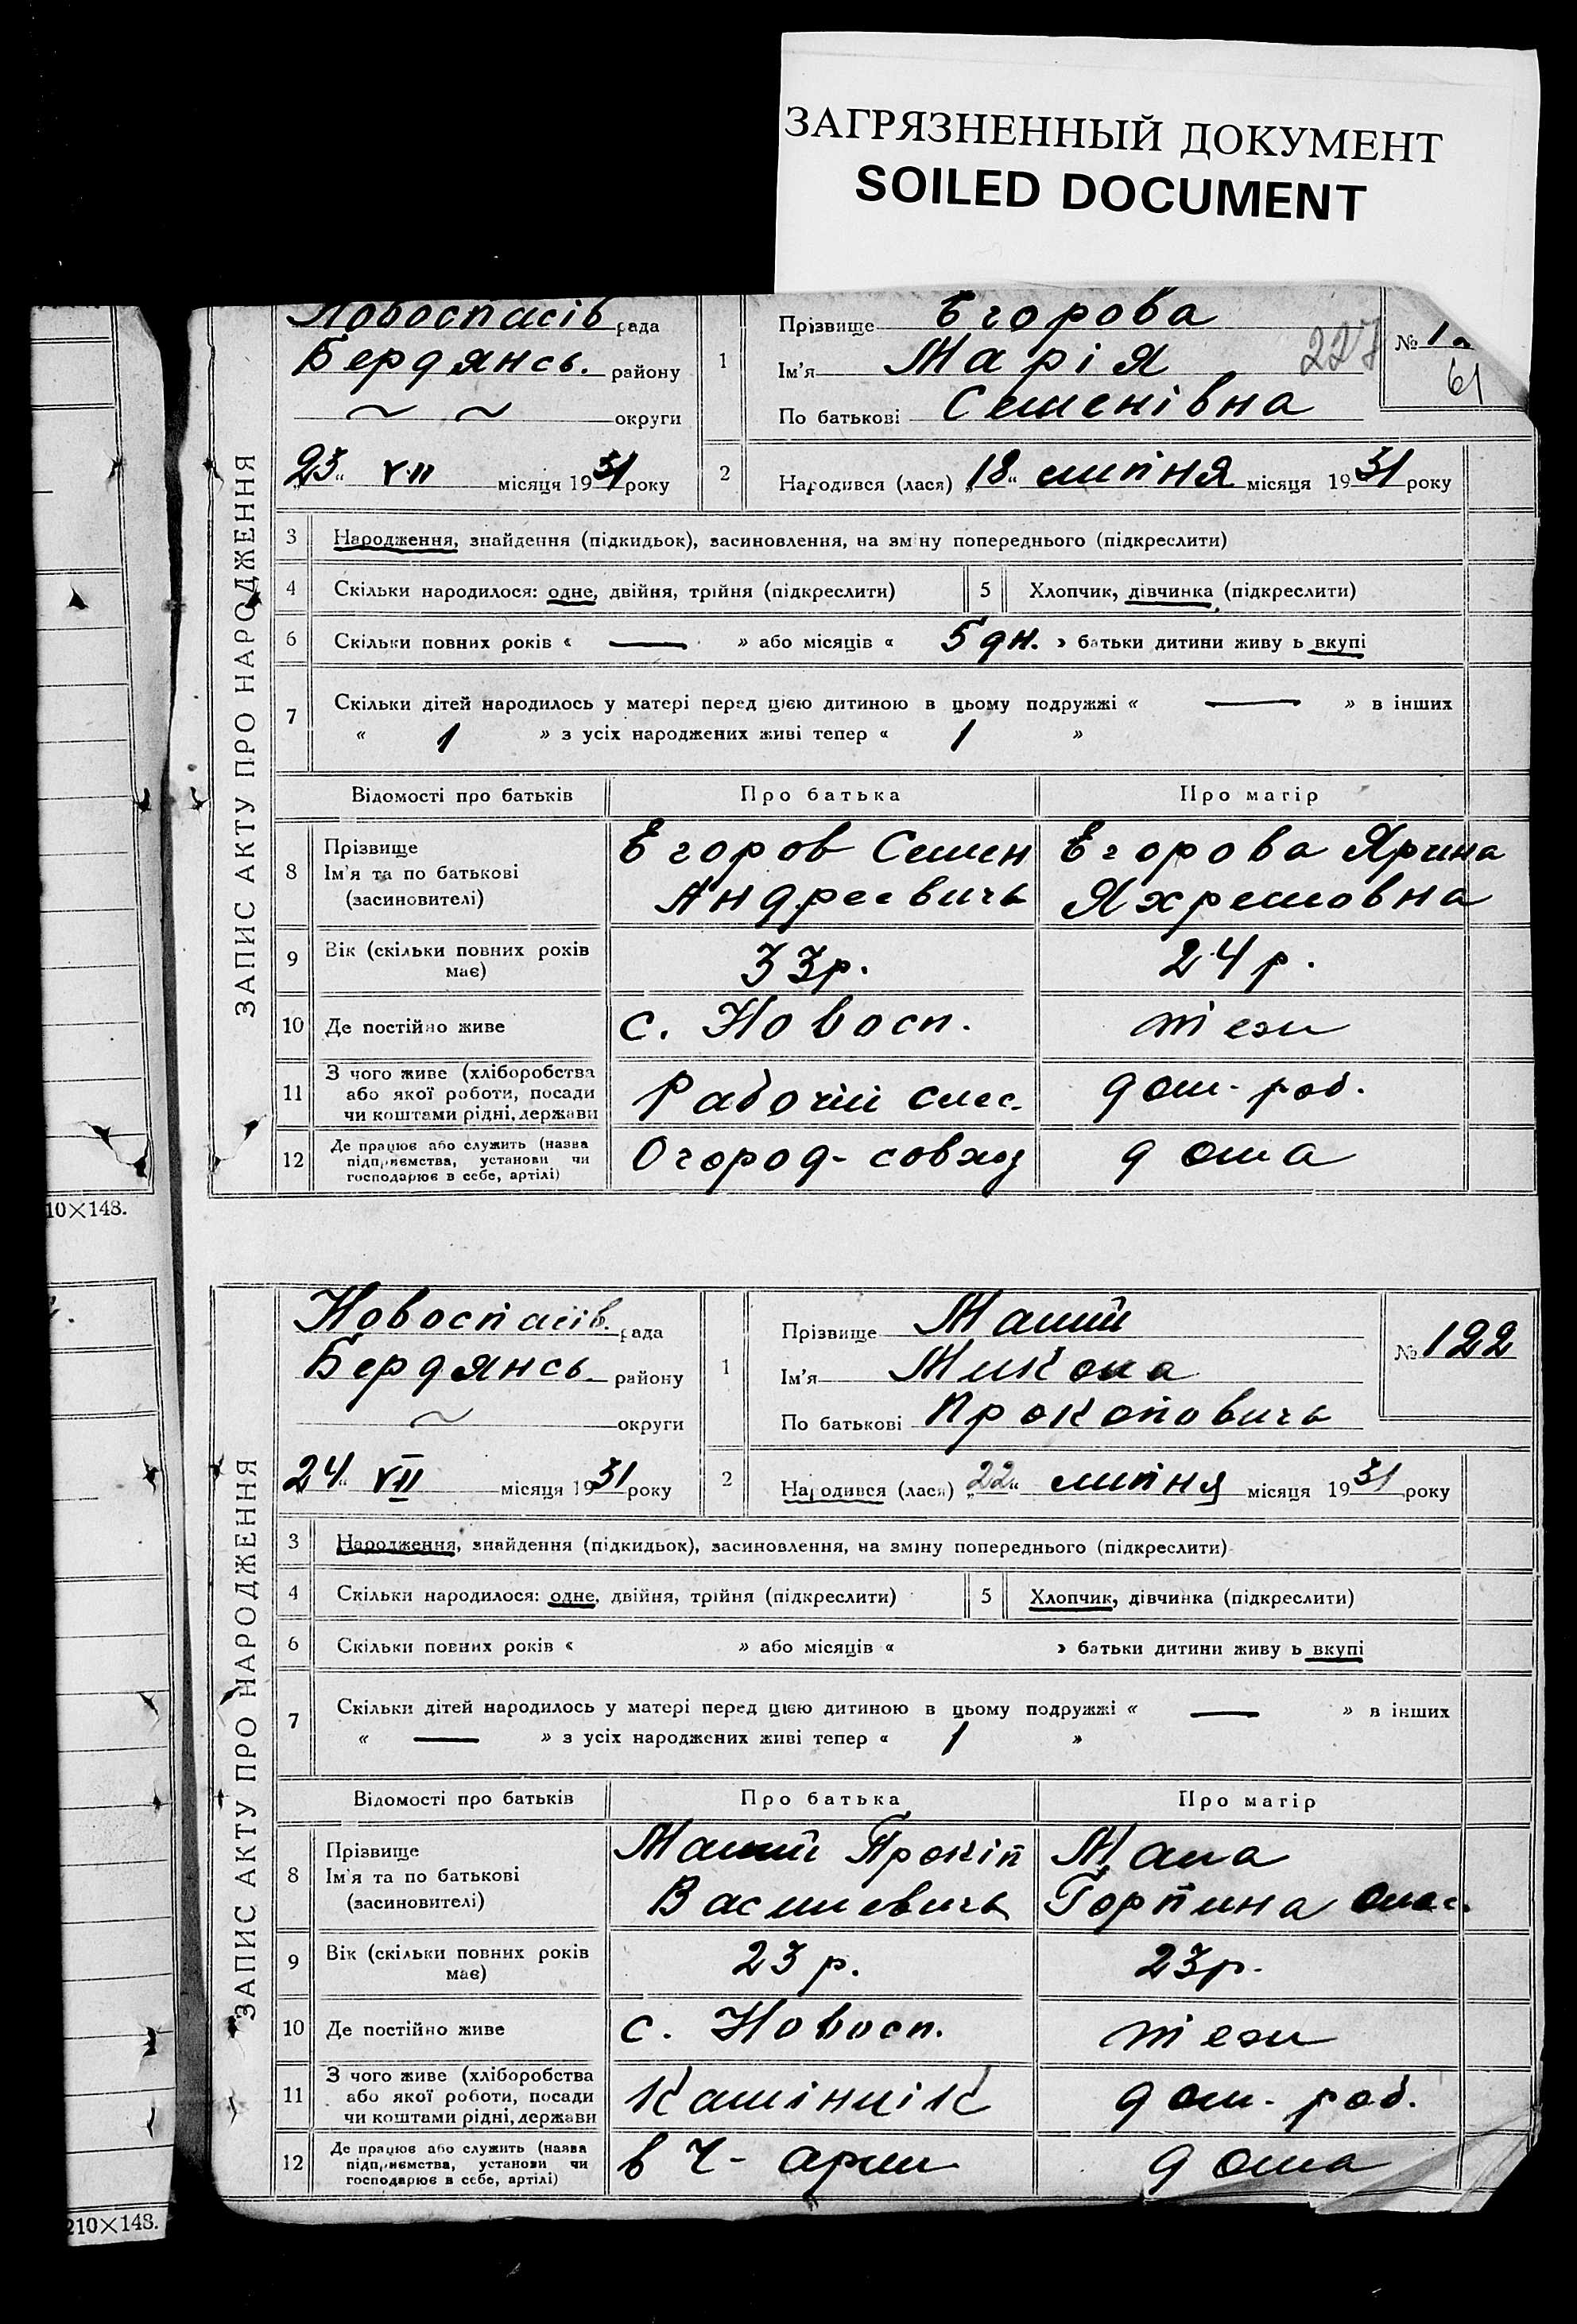 ЗАГРЯЗНЕННЫЙ ДОКУМЕНТ
SOILED DOCUMENT
ЗАПИС АКТУ ПРО НАРОДЖЕННЯ
Новоспасів рада
Бердянсь. району
округи
„23“ VII місяця 1931 року
1 Прізвище Егорова
Ім'я Марія
По батькові Семенівна
227
№ 1
61
2 Народився (лася) „18“ липня місяця 1931 року
3 Народження, знайдення (підкидьок), засиновлення, на зміну попереднього (підкреслити)
4 Скільки народилося: одне, двійня, трійня (підкреслити) 5 Хлопчик, дівчинка (підкреслити)
6 Скільки повних років « — » або місяців « 5 дн. » батьки дитини живу ь вкупі
7 Скільки дітей народилось у матері перед цією дитиною в цьому подружжі « — » в інших
« 1 » з усіх народжених живі тепер « 1 »
Відомості про батьків Про батька Про матір
8 Прізвище
Ім'я та по батькові
(засиновителі)
Егоров Семен
Андреевичь
Егорова Ярина
Яхремовна
9 Вік (скільки повних років має) 33р. 24 р.
10 Де постійно живе с. Новосп. теж
11 З чого живе (хліборобства
або якої роботи, посади
чи коштами рідні, держави
Рабочій слес. дом-роб.
12 Де працює або служить (назва
підприємства, установи чи
господарює в себе, артілі)
Огород-совхоз дома
10×148.
ЗАПИС АКТУ ПРО НАРОДЖЕННЯ
Новоспасів. рада
Бердянсь району
округи
„24“ VII місяця 1931 року
1 Прізвище Малий
Ім'я Микола
По батькові Прокоповичь
№ 122
2 Народився (лася) „22“ липня місяця 1931 року
3 Народження, знайдення (підкидьок), засиновлення, на зміну попереднього (підкреслити)
4 Скільки народилося: одне, двійня, трійня (підкреслити) 5 Хлопчик, дівчинка (підкреслити)
6 Скільки повних років « » або місяців « » батьки дитини живу ь вкупі
7 Скільки дітей народилось у матері перед цією дитиною в цьому подружжі « — » в інших
« — » з усіх народжених живі тепер « 1 »
Відомості про батьків Про батька Про матір
8 Прізвище
Ім'я та по батькові
(засиновителі)
Малий Прокіп
Василевичь
Мала
Горпина
9 Вік (скільки повних років має) 23 р. 23р.
10 Де постійно живе с. Новосп. теж
11 З чого живе (хліборобства
або якої роботи, посади
чи коштами рідні, держави
Камінщік дом-роб.
12 Де працює або служить (назва
підприємства, установи чи
господарює в себе, артілі)
в Ч- арми дома
210×148.